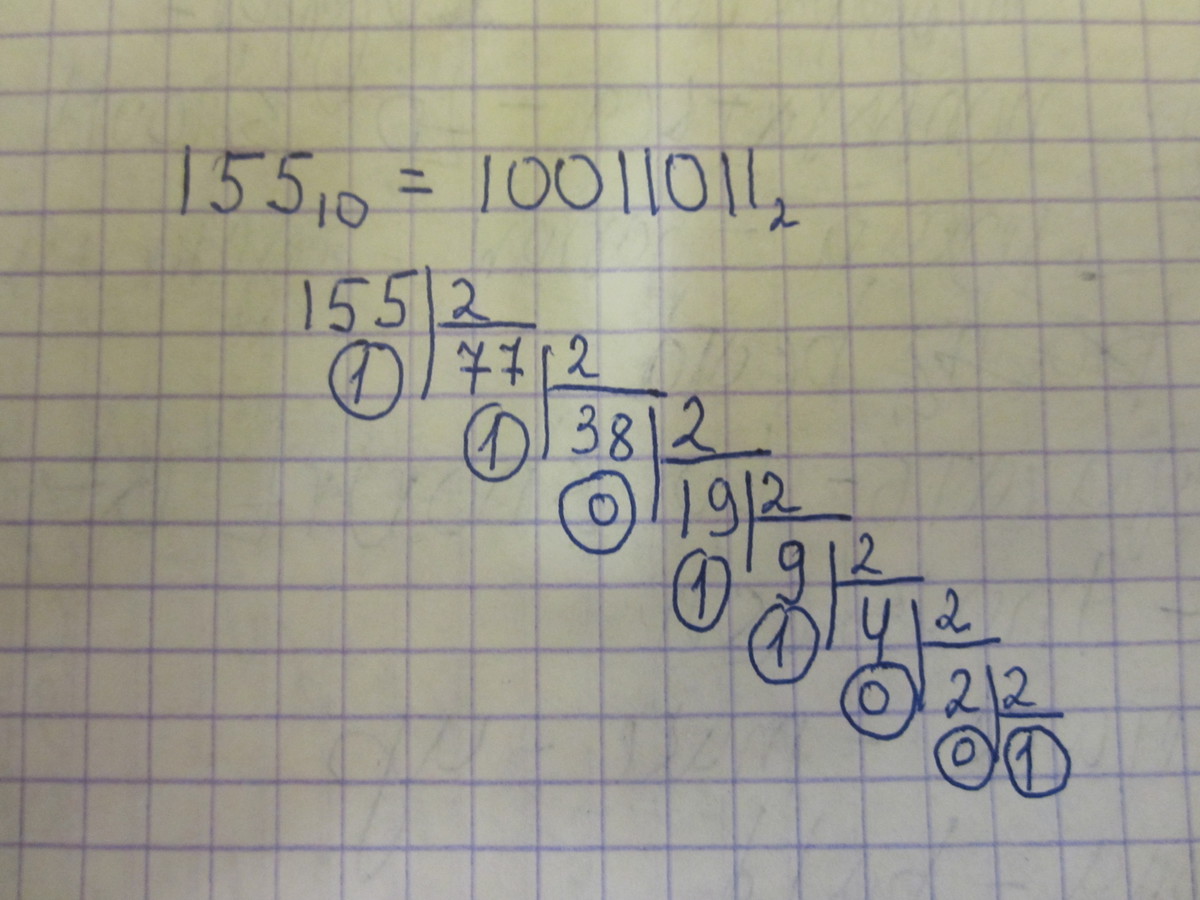 155₁₀ = 10011011₂
155 2
1 77 2
1 38 2
0 19 2
1 9 2
1 4 2
0 2 2
0 1